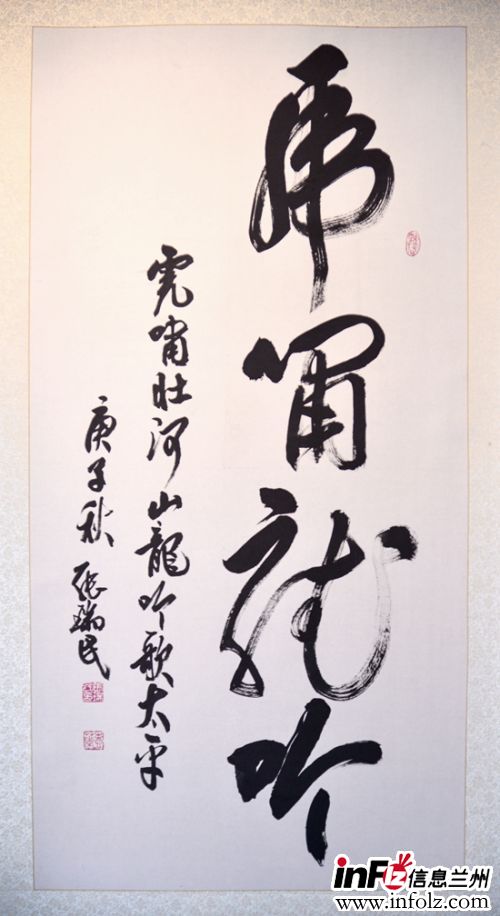 虎啸龙吟
虎啸壮河山龍吟歌太平
庚子秋 張瑞民
inFlz信息兰州
www.infolz.com